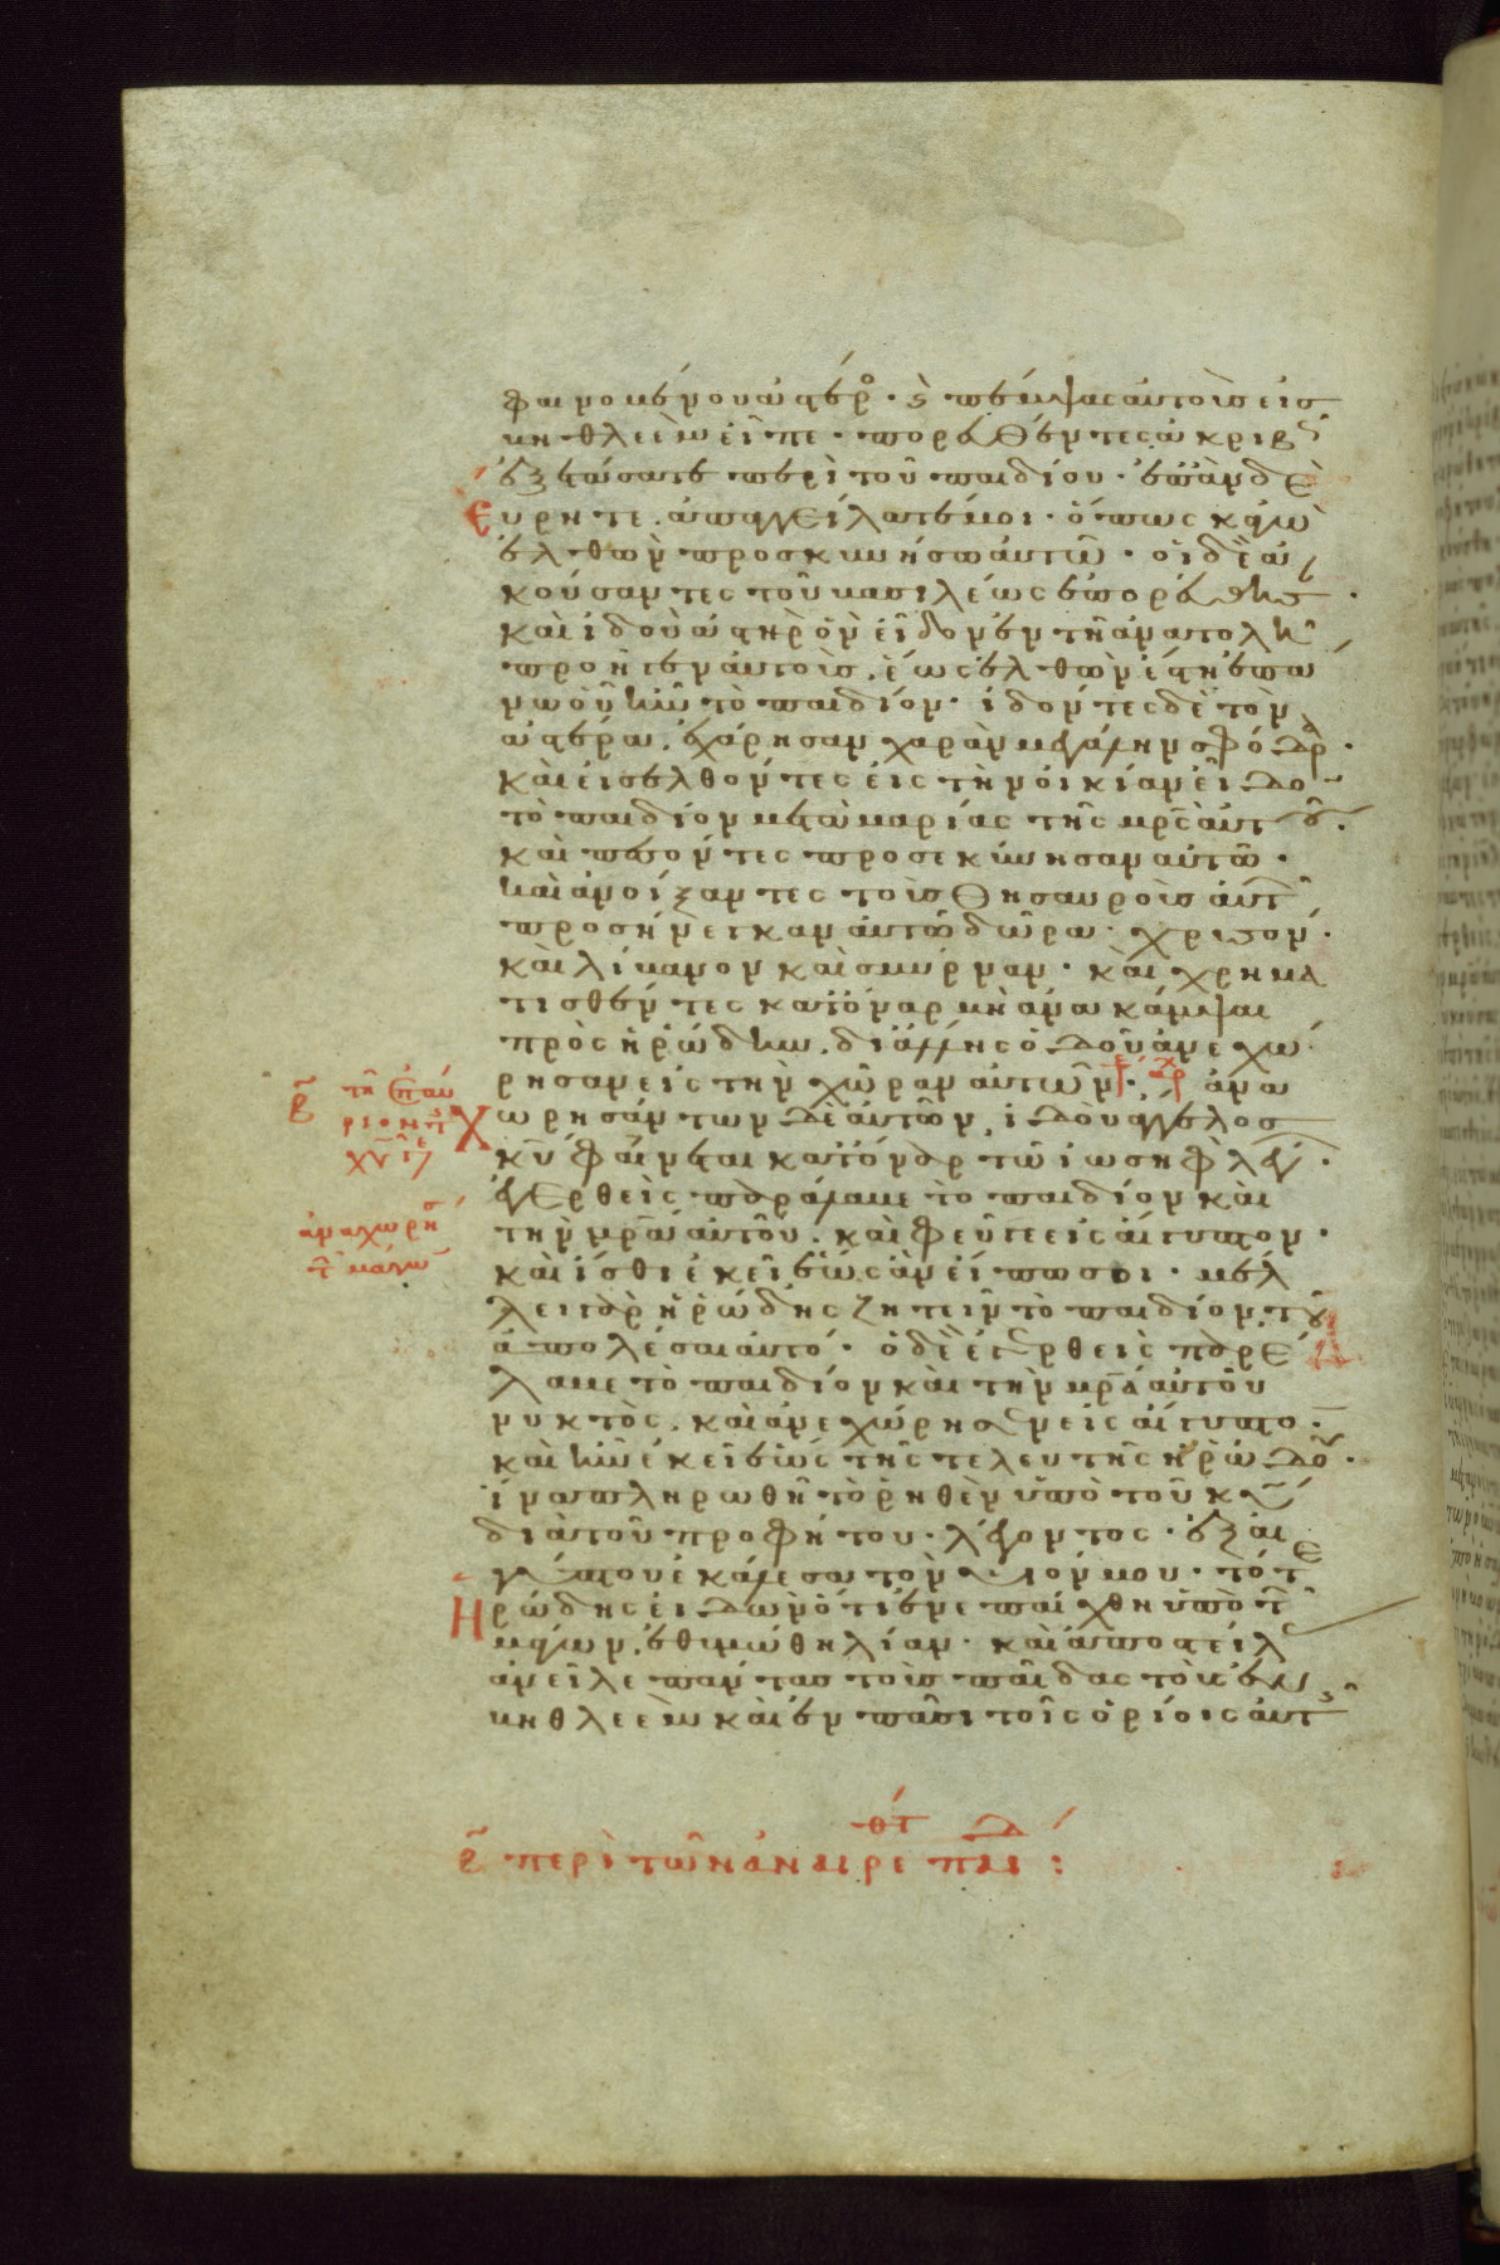 φαινομένου ἀστέρο · καὶ πέμψας αὐτοὺς εἰς
βηθλεὲμ εἶπε · πορευθέντες ἀκριβῶς
ἐξετάσατε περὶ τοῦ παιδίου · ἐπὰν δὲ
εὕρητε, ἀπαγγείλατέ μοι · ὅπως κἀγὼ
ἐλθὼν προσκυνήσω αὐτῶ · οἱ δὲ ἀ
κούσαντες τοῦ βασιλέως ἐπορεύθησ ·
καὶ ἰδοὺ ἀστὴρ ὃν εἶδον ἐν τῆ ἀνατολῆ
προῆγεν αὐτοὺς, ἕως ἐλθὼν ἔστη ἐπά
νω οὗ ἦν τὸ παιδίον · ἰδόντες δὲ τὸν
ἀστέρα, ἐχάρησαν χαρὰν μεγάλην σφόδρα ·
καὶ εἰσελθόντες εἰς τὴν οἰκίαν εἶδο
τὸ παιδίον μετὰ μαρίας τῆς μρς αὐτοῦ ·
καὶ πεσόντες προσεκύνησαν αὐτῶ ·
καὶ ἀνοίξαντες τοὺς θησαυροὺς αὐτ
προσήνεγκαν αὐτῶ δῶρα · χρυσὸν ·
καὶ λίβανον καὶ σμύρναν · καὶ χρημα
τισθέντες κατ' ὄναρ μὴ ἀνακάμψαι
πρὸς ἡρώδην, δι' ἄλλης ὁδοῦ ἀνεχώ
ρησαν εἰς τὴν χῶραν αὐτῶν · ἀνα
χωρησάντων δὲ αὐτῶν, ἰδοὺ ἄγγελος
κυ φαίνεται κατ' ὄναρ τῶ ἰωσὴφ λέγ ·
ἐγερθεὶς παράλαβε τὸ παιδίον καὶ
τὴν μρα αὐτοῦ · καὶ φεῦγε εἰς αἴγυπτον ·
καὶ ἴσθι ἐκεῖ ἕως ἂν εἴπω σοι · μέλ
λει γὰρ ἡρώδης ζητεῖν τὸ παιδίον, τοῦ
ἀπολέσαι αὐτό · ὁ δὲ ἐγερθεὶς παρέ
λαβε τὸ παιδίον καὶ τὴν μρα αὐτοῦ
νυκτὸς, καὶ ἀνεχώρησεν εἰς αἴγυπτο ·
καὶ ἦν ἐκεῖ ἕως τῆς τελευτῆς ἡρώδου ·
ἵνα πληρωθῆ τὸ ῥηθὲν ὑπὸ τοῦ κυ
διὰ τοῦ προφήτου · λέγοντος · ἐξ αἰ
γύπτου ἐκάλεσα τὸν υἱόν μου · τότε
ἡρώδης εἰδὼν ὅτι ἐνεπαίχθη ὑπὸ τῶν
μάγων, ἐθυμώθη λίαν · καὶ ἀποστείλ
ἀνεῖλε πάντας τοὺς παῖδας τοὺς ἐν
βηθλεὲμ καὶ ἐν πᾶσι τοῖς ὁρίοις αὐτ
β τῆ ἐπαύ
ριον τ
χυ
ἀναχωρησ
τ μάγω
β περὶ τῶν ἀναιρεθτ παιδ :